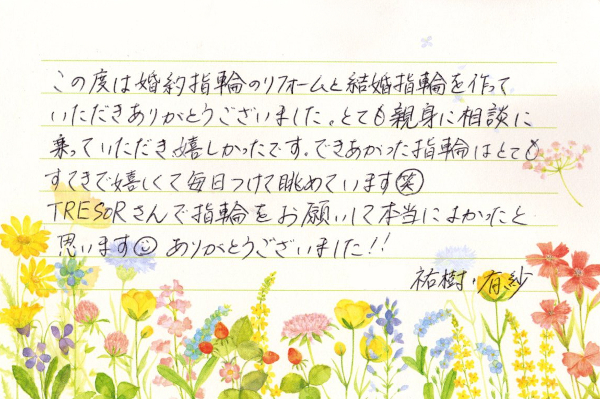 この度は婚約指輪のリフォームと結婚指輪を作って
いただきありがとうございました。とても親身に相談に
乗っていただき嬉しかったです。できあがった指輪はとても
すてきで嬉しくて毎日つけて眺めています笑
TRESORさんで指輪をお願いして本当によかったと
思います☺ ありがとうございました!!
祐樹・有紗